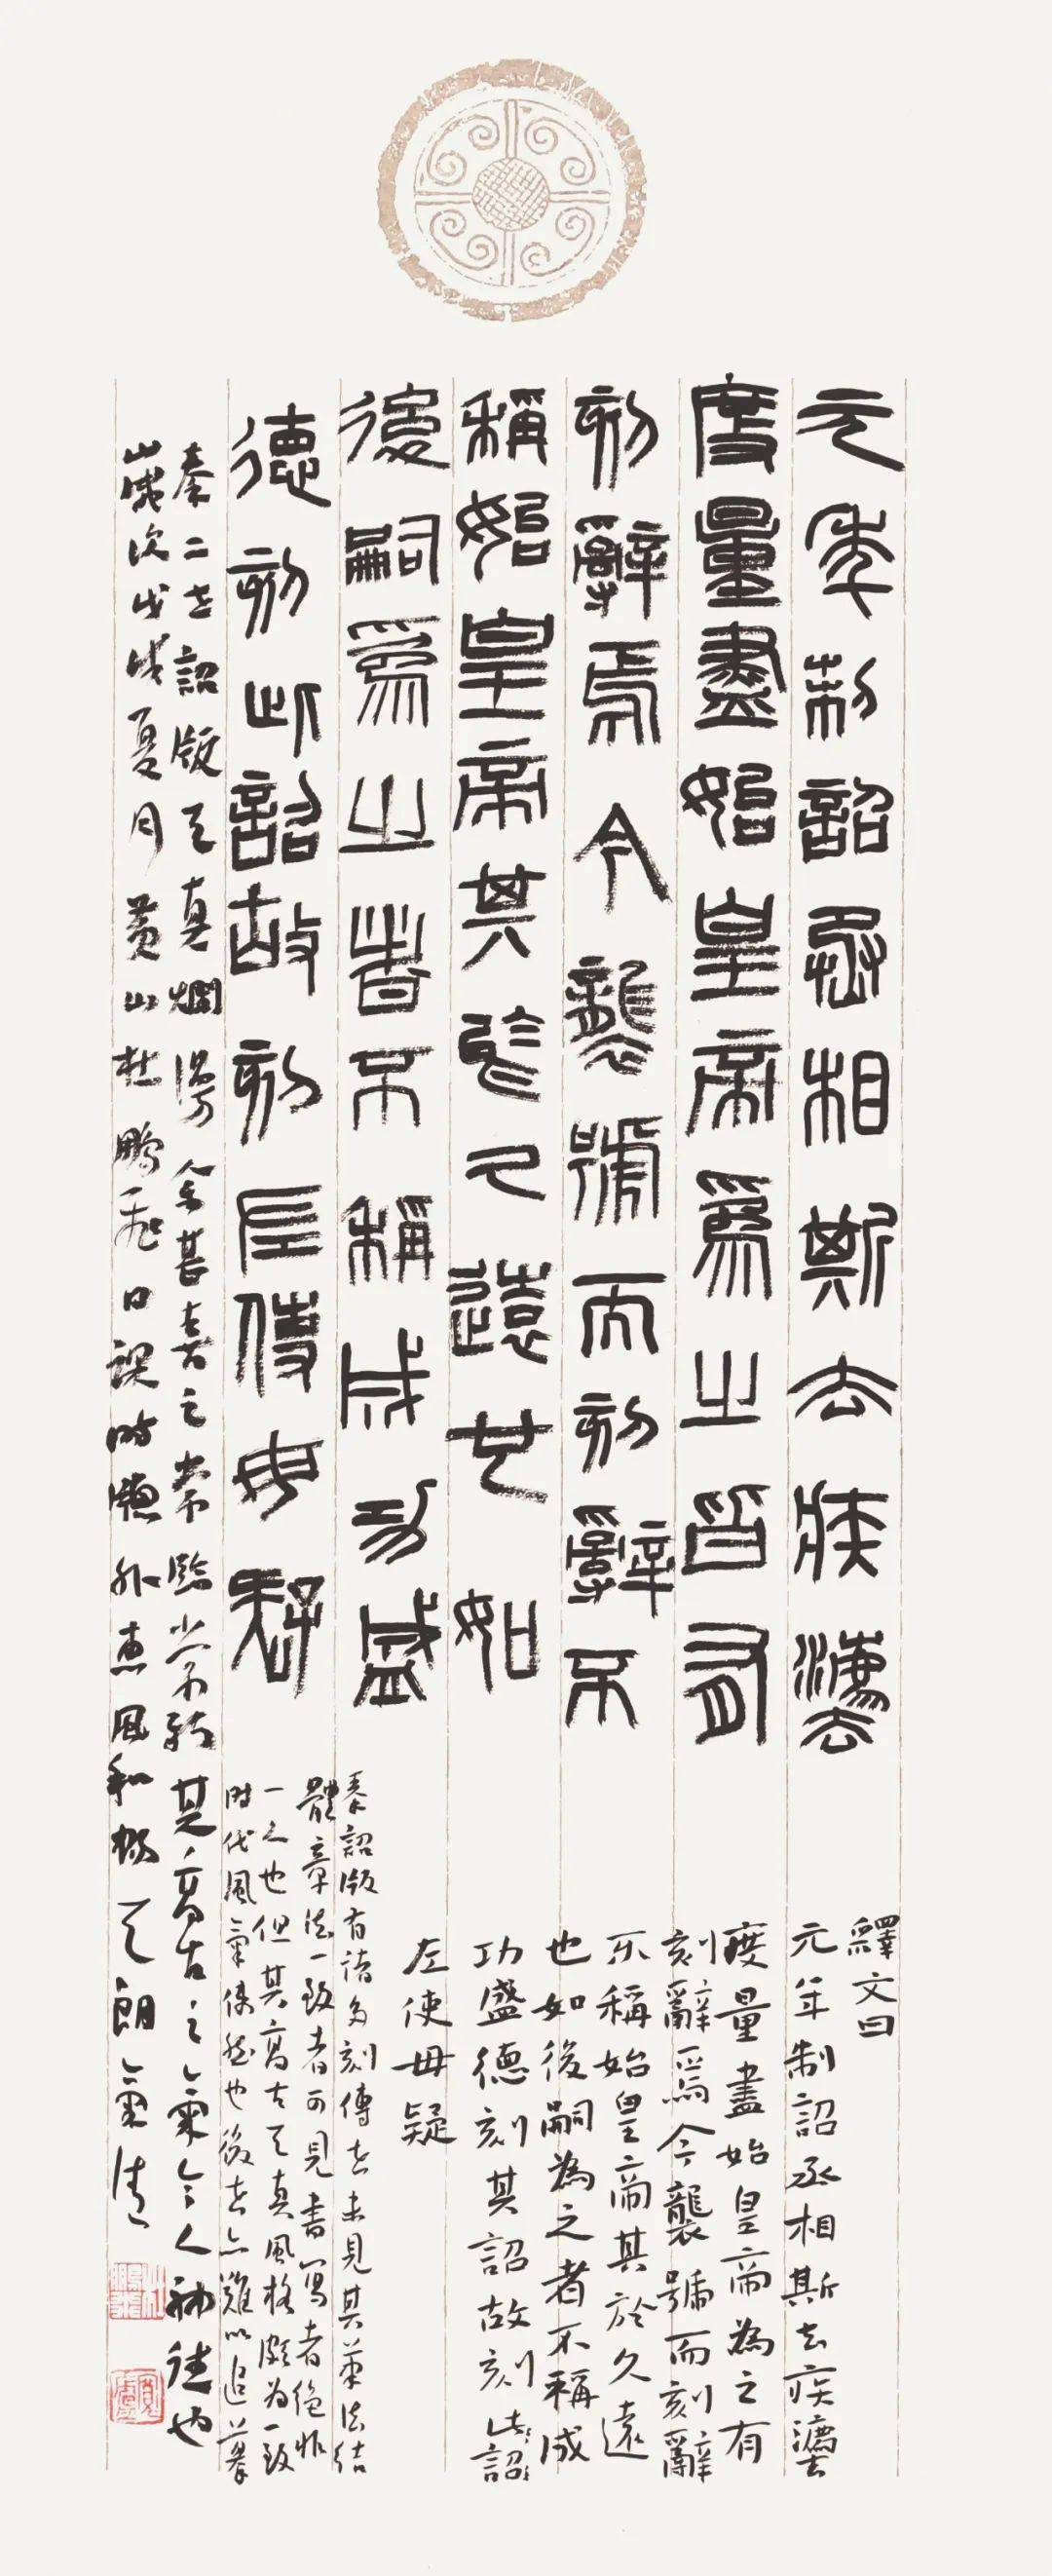 元年制詔丞相斯去疾灋
度量盡始皇帝爲之皆有
刻辭焉今襲號而刻辭不
稱始皇帝其於久遠也如
後嗣爲之者不稱成功盛
德刻此詔故刻左使毋疑
繹文曰
元年制詔丞相斯去疾灋
度量盡始皇帝為之有
刻辭焉今襲號而刻辭
不稱始皇帝其於久遠
也如後嗣為之者不稱成
功盛德刻其詔故刻此詔
左使毋疑
秦詔版有諸多刻傳世未見其筆法結
體章法一致者可見書寫者絕非
一人也但其高古天真風格頗為一致
時代風氣使然也後世亦難以追摹
秦二世詔版天真爛漫余甚喜之常臨常新其高古之氣令人神往也
歲次戊戌夏月黃山杜鵬飛日課時牕外惠風和暢天朗氣清